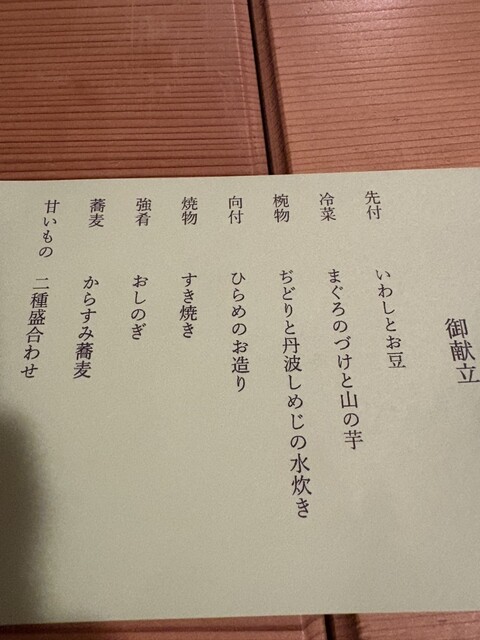 御献立
先付 いわしとお豆
冷菜 まぐろのづけと山の芋
椀物 ぢどりと丹波しめじの水炊き
向付 ひらめのお造り
焼物 すき焼き
強肴 おしのぎ
蕎麦 からすみ蕎麦
甘いもの 二種盛合わせ